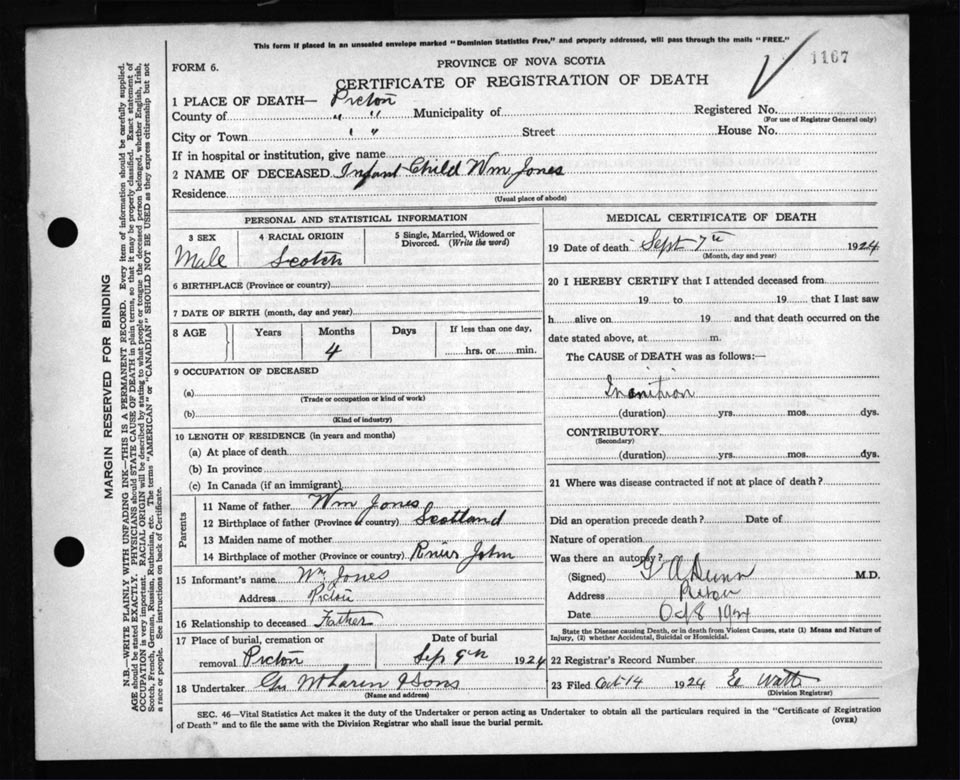 This form if placed in an unsealed envelope marked "Dominion Statistics Free," and properly addressed, will pass through the mails "FREE."
1167
FORM 6.
PROVINCE OF NOVA SCOTIA
CERTIFICATE OF REGISTRATION OF DEATH
1 PLACE OF DEATH— Pictou
County of " " Municipality of Registered No.
(For use of Registrar General only)
City or Town " " Street House No.
If in hospital or institution, give name
2 NAME OF DECEASED Infant Child Wm Jones
Residence
(Usual place of abode)
PERSONAL AND STATISTICAL INFORMATION
3 SEX 4 RACIAL ORIGIN 5 Single, Married, Widowed or Divorced. (Write the word)
Male Scotch
6 BIRTHPLACE (Province or country)
7 DATE OF BIRTH (month, day and year)
8 AGE Years Months Days If less than one day,
4 hrs. or min.
9 OCCUPATION OF DECEASED
(a)
(Trade or occupation or kind of work)
(b)
(Kind of industry)
10 LENGTH OF RESIDENCE (in years and months)
(a) At place of death
(b) In province
(c) In Canada (if an immigrant)
Parents
11 Name of father Wm Jones
12 Birthplace of father (Province or country) Scotland
13 Maiden name of mother
14 Birthplace of mother (Province or country) River John
15 Informant's name Wm Jones
Address Pictou
16 Relationship to deceased Father
17 Place of burial, cremation or Date of burial
removal Pictou Sep 9th 1924
18 Undertaker & Sons
(Name and address)
MEDICAL CERTIFICATE OF DEATH
19 Date of death Sept 7th 1924
(Month, day and year)
20 I HEREBY CERTIFY that I attended deceased from
19 to 19 that I last saw
h alive on 19 and that death occurred on the
date stated above, at m.
The CAUSE of DEATH was as follows:—
Inanition
(duration) yrs. mos. dys.
CONTRIBUTORY
(Secondary)
(duration) yrs. mos. dys.
21 Where was disease contracted if not at place of death?
Did an operation precede death? Date of
Nature of operation
Was there an autopsy?
(Signed) G A Dunn M.D.
Address Pictou
Date Oct 8 1924
State the Disease causing Death, or in death from Violent Causes, state (1) Means and Nature of
Injury, (2) whether Accidental, Suicidal or Homicidal.
22 Registrar's Record Number
23 Filed Oct 14 1924
(Division Registrar)
SEC. 46—Vital Statistics Act makes it the duty of the Undertaker or person acting as Undertaker to obtain all the particulars required in the "Certificate of Registration
of Death" and to file the same with the Division Registrar who shall issue the burial permit.
(OVER)
MARGIN RESERVED FOR BINDING
N.B.—WRITE PLAINLY WITH UNFADING INK—THIS IS A PERMANENT RECORD. Every item of information should be carefully supplied.
AGE should be stated EXACTLY. PHYSICIANS should STATE CAUSE OF DEATH in plain terms, so that it may be properly classified. Exact statement of
OCCUPATION is very important. RACIAL ORIGIN will be described by stating to what people or tongue the deceased person belonged, whether English, Irish,
Scotch, French, German, Russian, Ruthenian, etc. The terms "AMERICAN" or "CANADIAN" SHOULD NOT BE USED as they express citizenship but not
a race or people. See instructions on back of Certificate.